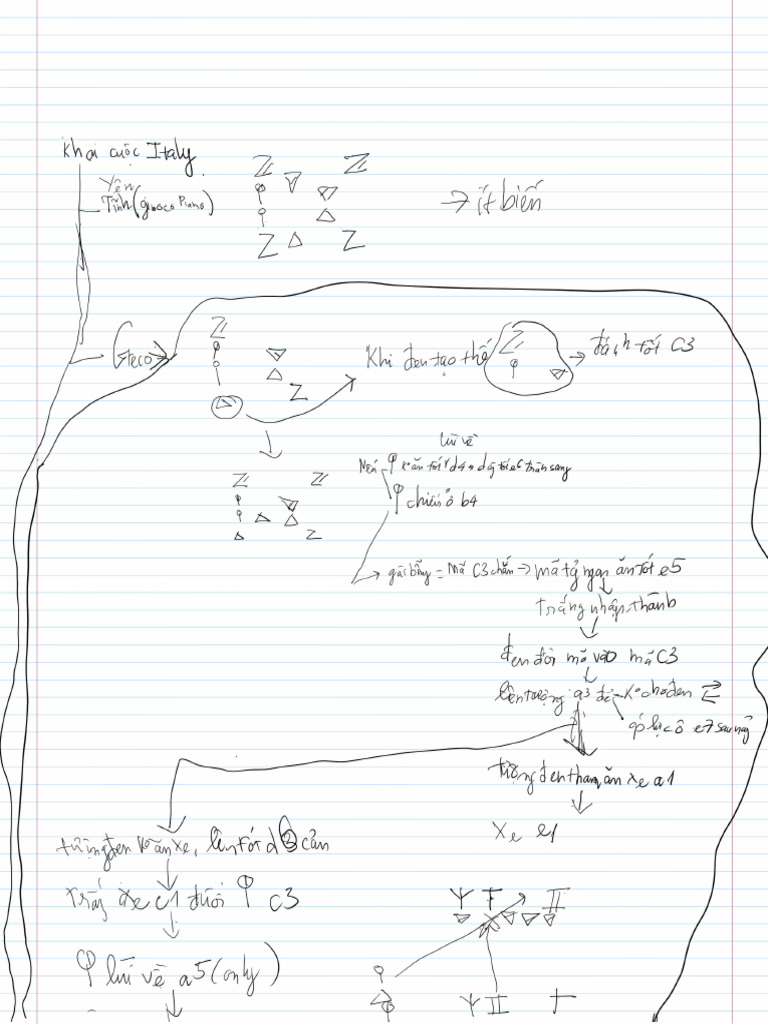 Khai cuộc Italy
Yên
Tĩnh (giuoco Piano)
→ ít biến
Greco
Khi đen tạo thế
→ đánh tốt C3
lùi về
Nếu ko ăn tốt d4 đẩy tốt e5 tràn sang
chiếu ở b4
→ gài bẫy = Mã C3 chắn → mã tỷ ngạn ăn tốt e5
trắng nhập thành
đen đổi mã vào mã C3
lên tượng a3 để ko cho đen
áp lực ô e7 sau này
tượng đen tham ăn xe a1
Xe e1
tượng đen ko ăn xe, lên tốt d cản
trắng xe c1 đuổi C3
lùi về a5 (only)